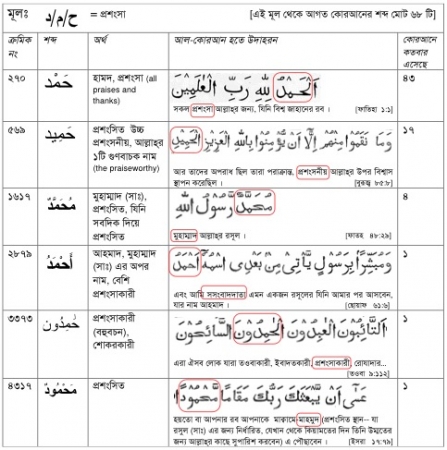 মূলঃ ح/م/د = প্রশংসা [এই মূল থেকে আগত কোরআনের শব্দ মোট ৬৮ টি]
ক্রমিক নং শব্দ অর্থ আল-কোরআন হতে উদাহরন কোরআনে কতবার এসেছে
২৭০ حَمْد হামদ, প্রশংসা (all praises and thanks) ৪৩
اَلْحَمْدُ لِلّٰهِ رَبِّ الْعٰلَمِيْنَ
সকল প্রশংসা আল্লাহর জন্য, যিনি বিশ্ব জাহানের রব । [ফাতিহা ১:১]
৫৬৯ حَمِيْد প্রশংসিত উচ্চ প্রশংসনীয়, আল্লাহর ১টি গুণবাচক নাম (the praiseworthy) ১৭
وَمَا نَقَمُوْا مِنْهُمْ اِلَّا اَنْ يُّؤْمِنُوْا بِاللّٰهِ الْعَزِيْزِ الْحَمِيْدِ
আর তাদের অপরাধ ছিল তারা পরাক্রান্ত, প্রশংসনীয় আল্লাহর উপর বিশ্বাস
স্থাপন করেছিল । [বুরুজ ৮৫:৮]
১৬১৭ مُحَمَّدٌ মুহাম্মাদ (সাঃ), প্রশংসিত, যিনি সবদিক দিয়ে প্রশংসিত ৪
مُحَمَّدٌ رَّسُوْلُ اللّٰهِ
মুহাম্মাদ আল্লাহর রসূল । [ফাতহ ৪৮:২৯]
২৮৭৯ أَحْمَدُ আহমাদ, মুহাম্মাদ (সাঃ) এর অপর নাম, বেশি প্রশংসাকারী ১
وَمُبَشِّرًا بِرَسُوْلٍ يَّاْتِيْ مِنْۢ بَعْدِى اسْمُهٗٓ اَحْمَدُ
এবং আমি সুসংবাদদাতা এমন একজন রসূলের যিনি আমার পর আসবেন,
যার নাম আহমাদ । [ছোয়াফ ৬১:৬]
৩৩৭৩ حَٰمِدُون প্রশংসাকারী (বহুবচন), শোকরকারী ১
اَلتَّآئِبُوْنَ الْعٰبِدُوْنَ الْحٰمِدُوْنَ السَّآئِحُوْنَ
এরা ঐসব লোক যারা তওবাকারী, ইবাদতকারী, প্রশংসাকারী রোযাদার...
[তওবা ৯:১১২]
৪৩১৭ مَحْمُودٌ প্রশংসিত ১
عَسٰٓى اَنْ يَّبْعَثَكَ رَبُّكَ مَقَامًا مَّحْمُوْدًا
হয়তো বা আপনার রব আপনাকে মাক্বামে মাহমুদ (প্রশংসিত স্থান - যা
রসূল (সাঃ) এর জন্য নির্ধারিত, যেখান থেকে কিয়ামতের দিন তিনি উম্মতের
জন্য আল্লাহর কাছে সুপারিশ করবেন) এ পৌছাবেন । [ইসরা ১৭:৭৯]